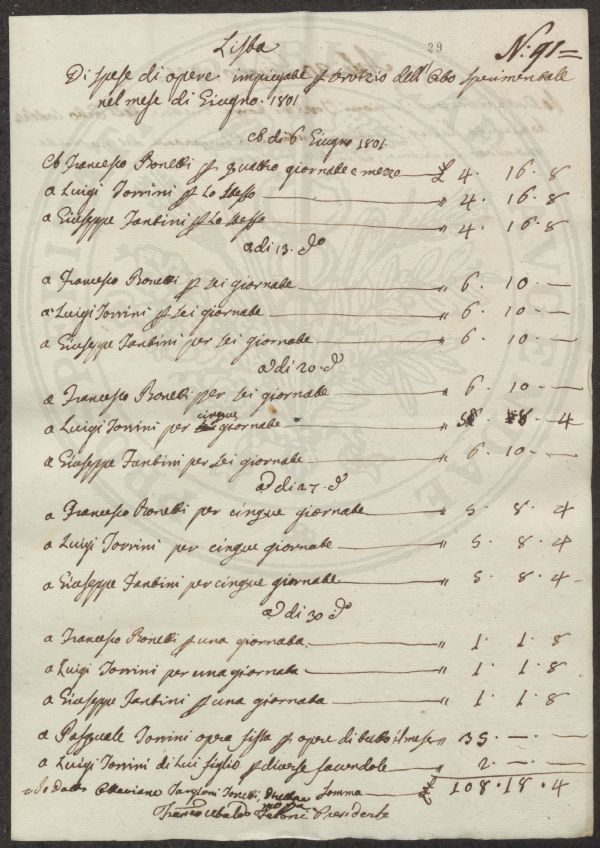 Lista
29
N: 91=
Di spese di opere impiegate p Servizio dell' Orto Sperimentale
nel mese di Giugno. 1801
a di 6 Giugno 1801.
a Francesco Bonetti p quattro giornate e mezzo £ 4. 16. 8
a Luigi Torrini p Lo Stesso " 4. 16. 8
a Giuseppe Fantini p Lo stesso " 4. 16. 8
a di 13. do
a Francesco Bonetti p sei giornate " 6. 10. —
a Luigi Torrini p sei giornate " 6. 10. —
a Giuseppe Fantini per sei giornate " 6. 10. —
a di 20. do
a Francesco Bonetti per sei giornate " 6. 10. —
a Luigi Torrini per cinque giornate " 5. 8. 4
a Giuseppe Fantini per sei giornate " 6. 10. —
a di 27. do
a Francesco Bonetti per cinque giornate " 5. 8. 4
a Luigi Torrini per cinque giornate " 5. 8. 4
a Giuseppe Fantini per cinque giornate " 5. 8. 4
a di 30 do
a Francesco Bonetti p una giornata " 1. 1. 8
a Luigi Torrini per una giornata " 1. 1. 8
a Giuseppe Fantini p una giornata " 1. 1. 8
a Pasquale Torrini opera fissa p opere di tutto il mese " 35 — —
a Luigi Torrini di Lui figlio p diverse faccendole " 2. — —
Io Dottr Ottaviano Targioni Tozzetti Direttore Somma £ 108. 18. 4
Presidente